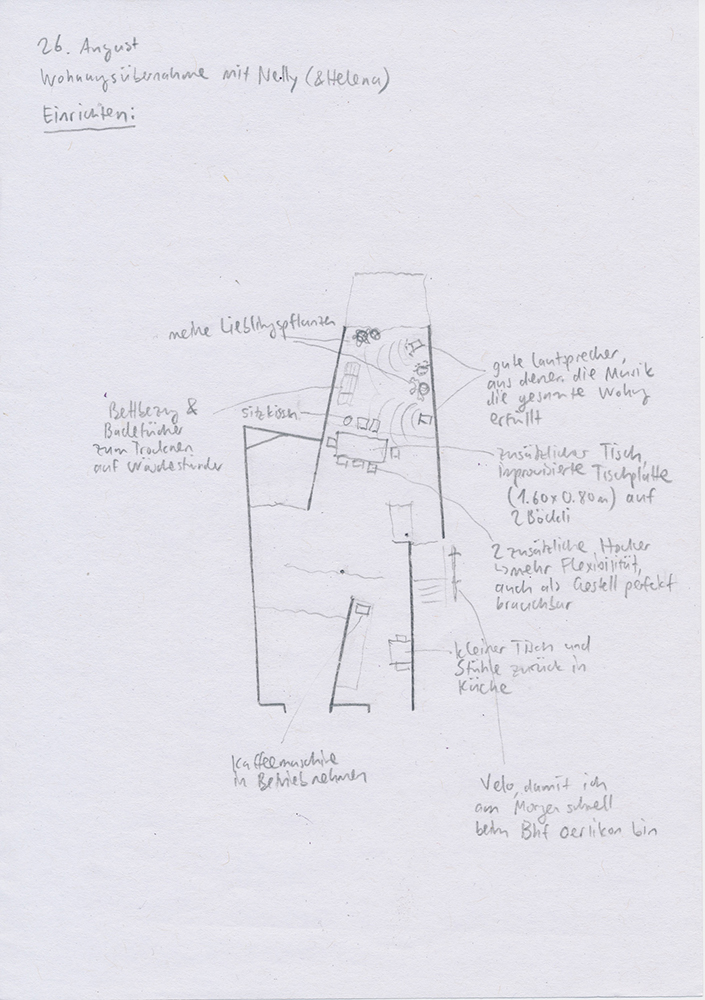 26. August
Wohnungsübernahme mit Nelly (& Helena)
Einrichten:
meine Lieblingspflanzen
gute Lautsprecher,
aus denen die Musik
die gesamte Wohng
erfüllt
Bettbezug &
Badetücher
zum Trocknen
auf Wäscheständer
Sitzkissen
zusätzlicher Tisch,
improvisierte Tischplatte
(1.60 x 0.80m) auf
2 Böckli
2 zusätzliche Hocker
↳ mehr Flexibilität,
auch als Gestell perfekt
brauchbar
kleiner Tisch und
Stühle zurück in
Küche
Kaffeemaschine
in Betrieb nehmen
Velo, damit ich
am Morgen schnell
beim Bhf Oerlikon bin